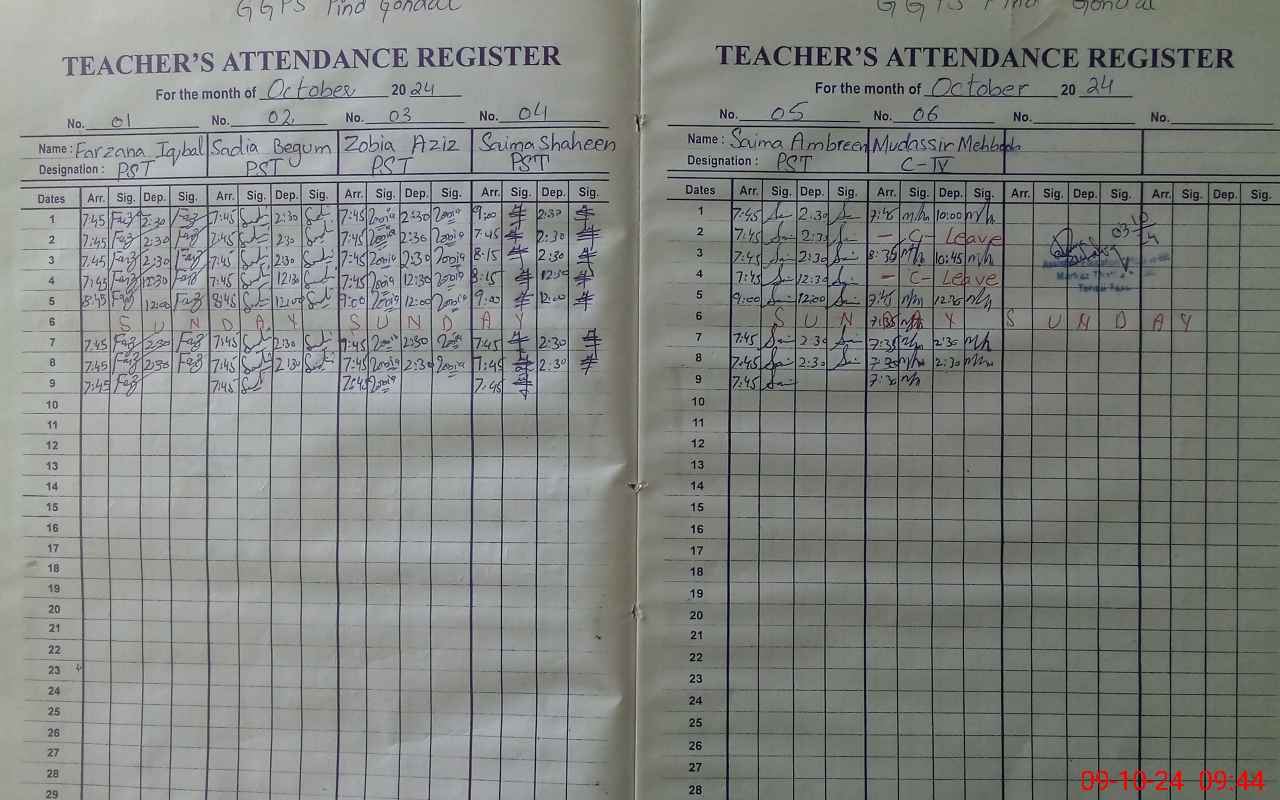 GGPS Pind Gondal
TEACHER'S ATTENDANCE REGISTER
For the month of October 2024
No. 01 No. 02 No. 03 No. 04
Name : Farzana Iqbal Sadia Begum Zobia Aziz Saima Shaheen
Designation : PST PST PST PST
Dates Arr. Sig. Dep. Sig. Arr. Sig. Dep. Sig. Arr. Sig. Dep. Sig. Arr. Sig. Dep. Sig.
1 7:45 Faz 2:30 Faz 7:45 2:30 7:45 Zobia 2:30 Zobia 9:00 2:30
2 7:45 Faz 2:30 Faz 7:45 2:30 7:45 Zobia 2:30 Zobia 7:45 2:30
3 7:45 Faz 2:30 Faz 7:45 2:30 7:45 Zobia 2:30 Zobia 8:15 2:30
4 7:45 Faz 12:30 Faz 7:45 12:30 7:45 Zobia 12:30 Zobia 8:15 12:30
5 8:45 Faz 12:00 Faz 8:45 12:00 9:00 Zobia 12:00 Zobia 9:00 12:00
6 S U N D A Y S U N D A Y
7 7:45 Faz 2:30 Faz 7:45 2:30 Zobia 2:30 Zobia 7:45 2:30
8 7:45 Faz 2:30 Faz 7:45 2:30 7:45 Zobia 2:30 Zobia 7:45 2:30
9 7:45 Faz 7:45 7:45 Zobia 7:45
10
11
12
13
14
15
16
17
18
19
20
21
22
23
24
25
26
27
28
29
GGPS Pind Gondal
TEACHER'S ATTENDANCE REGISTER
For the month of October 2024
No. 05 No. 06 No. No.
Name : Saima Ambreen Mudassir Mehboob
Designation : PST C-IV
Dates Arr. Sig. Dep. Sig. Arr. Sig. Dep. Sig. Arr. Sig. Dep. Sig. Arr. Sig. Dep. Sig.
1 7:45 2:30 7:45 m/h 10:00 m/h
2 7:45 2:30 — C- Leave 03-10-24
3 7:45 2:30 8:35 m/h 10:45 m/h
4 7:45 12:30 — C- Leave
5 9:00 12:00 7:45 m/h m/h
6 S U N D A Y 7:35 m/h S U N D A Y
7 7:45 2:30 7:35 m/h 2:30 m/h
8 7:45 2:30 7:30 m/h 2:30 m/h
9 7:45 7:30 m/h
10
11
12
13
14
15
16
17
18
19
20
21
22
23
24
25
26
27
28
09-10-24 09:44